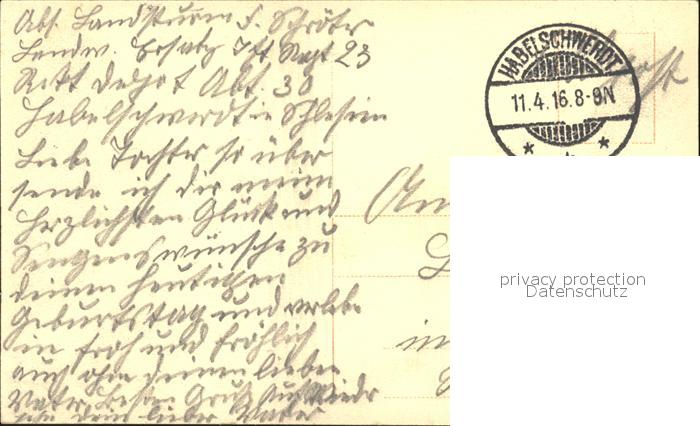 Abs. Landsturm F. Schröter
Landw. Ersatz Inf Regt 23
Rekt Depot Abt. 30
Habelschwerdt in Schlesien
Liebe Tochter so über
sende ich dir meine
herzlichsten Glück und
Seegenswünsche zu
deinem heutigen
Geburtstag und verlebe
in froh und fröhlich
auch ohne deinen lieben
Vater. Besten Gruß Auf Wieder
sehn dein lieber Vater
HABELSCHWERDT
11.4.16.8-9N
An
in
privacy protection
Datenschutz